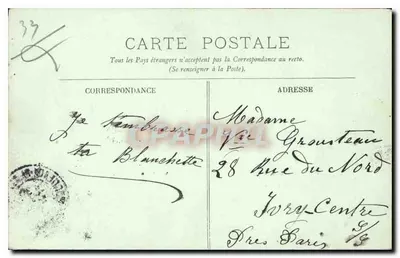 33
CARTE POSTALE
Tous les Pays étrangers n'acceptent pas la Correspondance au recto.
(Se renseigner à la Poste).
CORRESPONDANCE
ADRESSE
Je t'embrasse
ta Blanchette
Madame
Vve Grousteau
28 Rue du Nord
Ivry-Centre
Près Paris